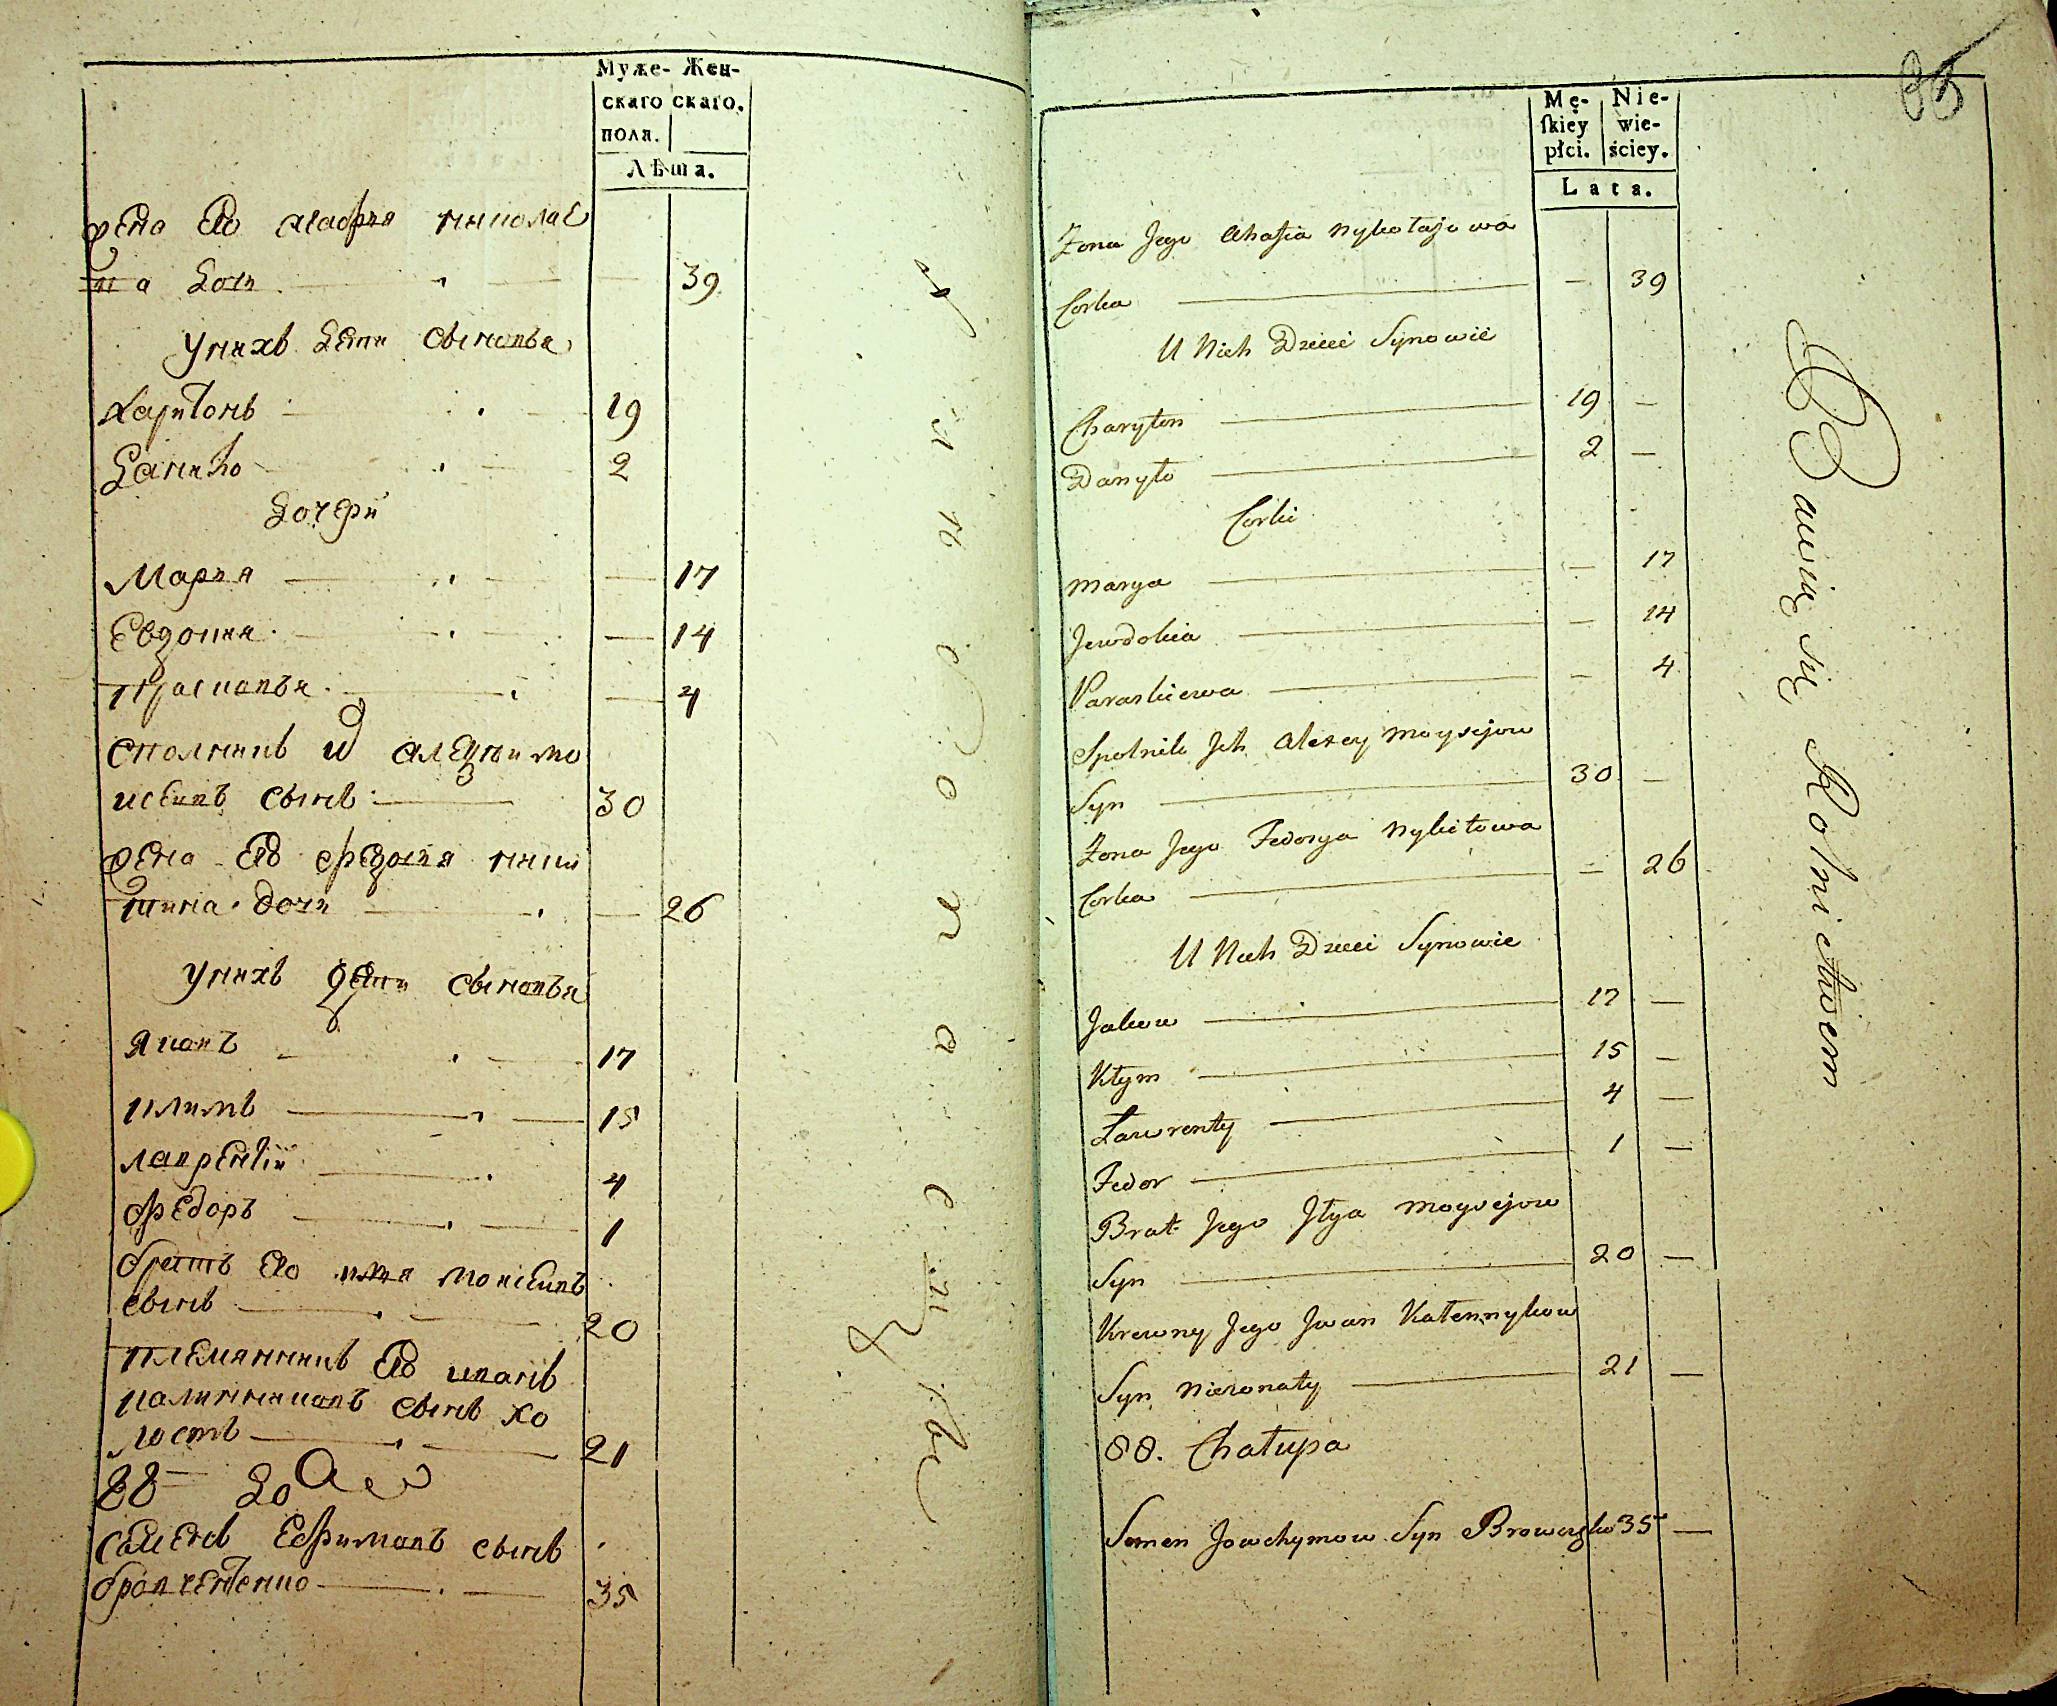 Муже- Жен-
скаго скаго.
поля.
Лѣта.
жена Его Агафия николае
ва дочь 39
у них детѣ сыновья
Харитонъ 19
Данило 2
дочери
Марья 17
Евдокия 14
Прасковья 4
Сполникъ их Алезѣй мо
исѣевъ сынъ 30
жена Его Федосия ники
тина дочь 26
у нихъ дети сыновья
Яковъ 17
климъ 15
лаврентій 4
Федоръ 1
братъ Его илья моисѣевъ
сынъ 20
племянникъ Его иванъ
калинниковъ сынъ хо
лостъ 21
88 дом
Семенъ Ефимовъ сынъ
бровченненко 35
Mę- Nie-
ſkiey wie-
płci. ściey.
Lata.
Żona Jego Ahafia Nykołajowa
Corka — 39
U Nich Dzieci Synowie
Charyton 19 —
Danyło 2 —
Corki
Marya — 17
Jewdokia — 14
Paraskiewa — 4
Spolnik Jch Alexey Moysejow
Syn 30 —
Żona Jego Fedosya Nykitowa
Corka — 26
U Nich Dzieci Synowie
Jakow 17 —
Kłym 15 —
Ławrenty 4 —
Fedor 1 —
Brat Jego Jłya Moysejow
Syn 20 —
Krewny Jego Jwan Kałennykow
Syn Niezonaty 21 —
88. Chałupa
Semen Joachymow Syn Browczenko 35 —
Bawią się Rolnictwem